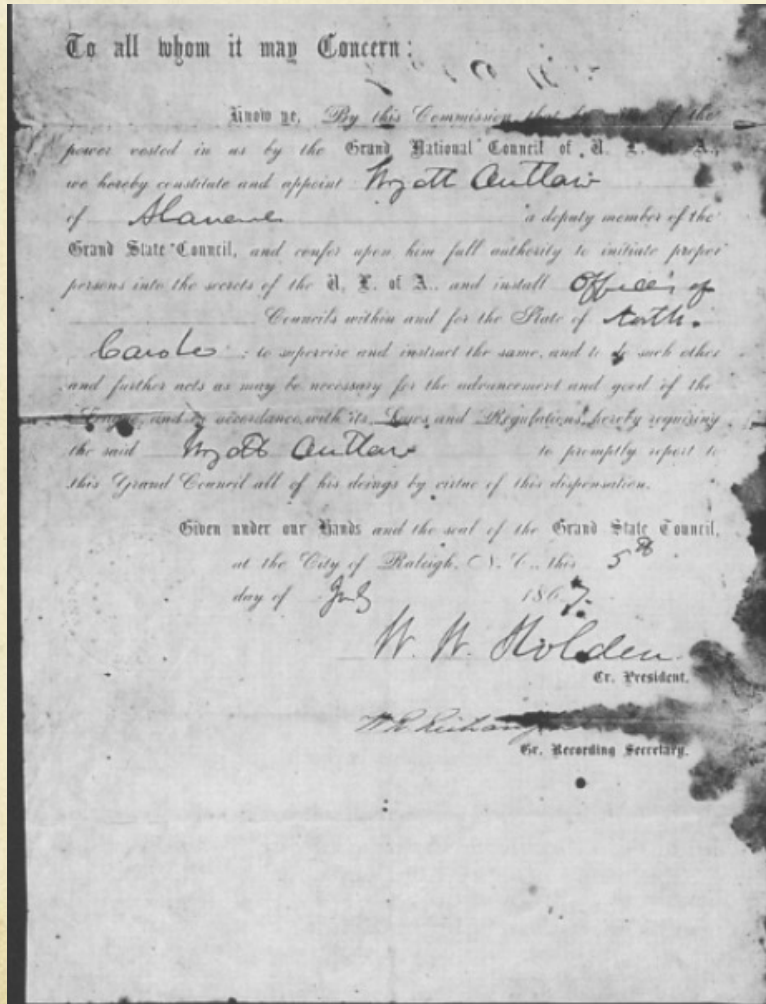 To all whom it may Concern:
Know ye, By this Commission, that by virtue of the
power vested in us by the Grand National Council of U. L. of A.,
we hereby constitute and appoint Wyatt Outlaw
of Alamance a deputy member of the
Grand State Council, and confer upon him full authority to initiate proper
persons into the secrets of the U. L. of A., and install Officers of
Councils within and for the State of North.
Carola : to supervise and instruct the same, and to do such other
and further acts as may be necessary for the advancement and good of the
League, and in accordance with its Laws and Regulations, hereby requiring
the said Wyatt Outlaw to promptly report to
this Grand Council all of his doings by virtue of this dispensation.
Given under our Hands and the seal of the Grand State Council,
at the City of Raleigh, N. C., this 5th
day of July 1867.
W. W. Holden
Gr. President.
Gr. Recording Secretary.